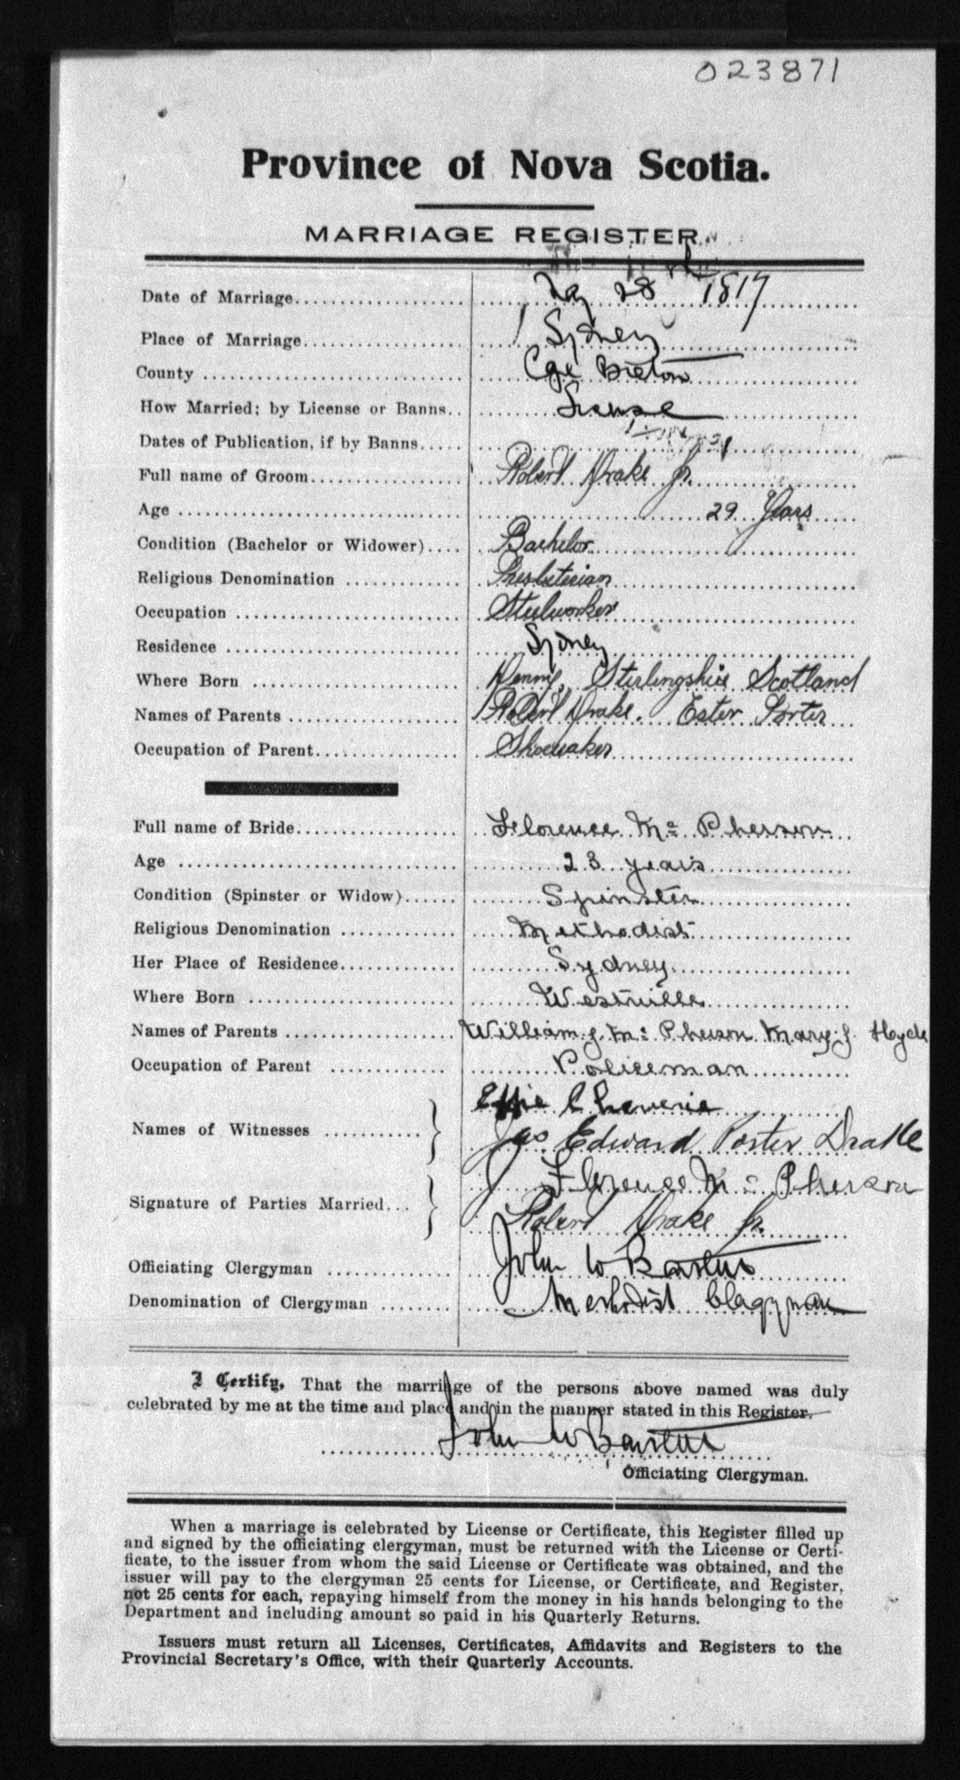 023871
Province of Nova Scotia.
MARRIAGE REGISTER.
Date of Marriage 28th 1917
Place of Marriage Sydney
County Cape Breton
How Married; by License or Banns License
Dates of Publication, if by Banns
Full name of Groom Robert Drake Jr.
Age 29 Years
Condition (Bachelor or Widower) Bachelor
Religious Denomination Presbyterian
Occupation Steelworker
Residence Sydney
Where Born Denny, Stirlingshire Scotland
Names of Parents Robert Drake. Ester Porter
Occupation of Parent Shoemaker
Full name of Bride Florence Mc Pherson
Age 23 years
Condition (Spinster or Widow) Spinster
Religious Denomination Methodist
Her Place of Residence Sydney
Where Born Westville
Names of Parents William J. Mc Pherson Mary J. Hyde
Occupation of Parent Policeman
Effie Cheverie
Names of Witnesses
Jas Edward Porter Drake
Florence Mc Pherson
Signature of Parties Married
Robert Drake Jr.
Officiating Clergyman John W
Denomination of Clergyman Methodist Clergyman
I Certify, That the marriage of the persons above named was duly
celebrated by me at the time and place and in the manner stated in this Register.
John W
Officiating Clergyman.
When a marriage is celebrated by License or Certificate, this Register filled up
and signed by the officiating clergyman, must be returned with the License or Certi-
ficate, to the issuer from whom the said License or Certificate was obtained, and the
issuer will pay to the clergyman 25 cents for License, or Certificate, and Register,
not 25 cents for each, repaying himself from the money in his hands belonging to the
Department and including amount so paid in his Quarterly Returns.
Issuers must return all Licenses, Certificates, Affidavits and Registers to the
Provincial Secretary's Office, with their Quarterly Accounts.